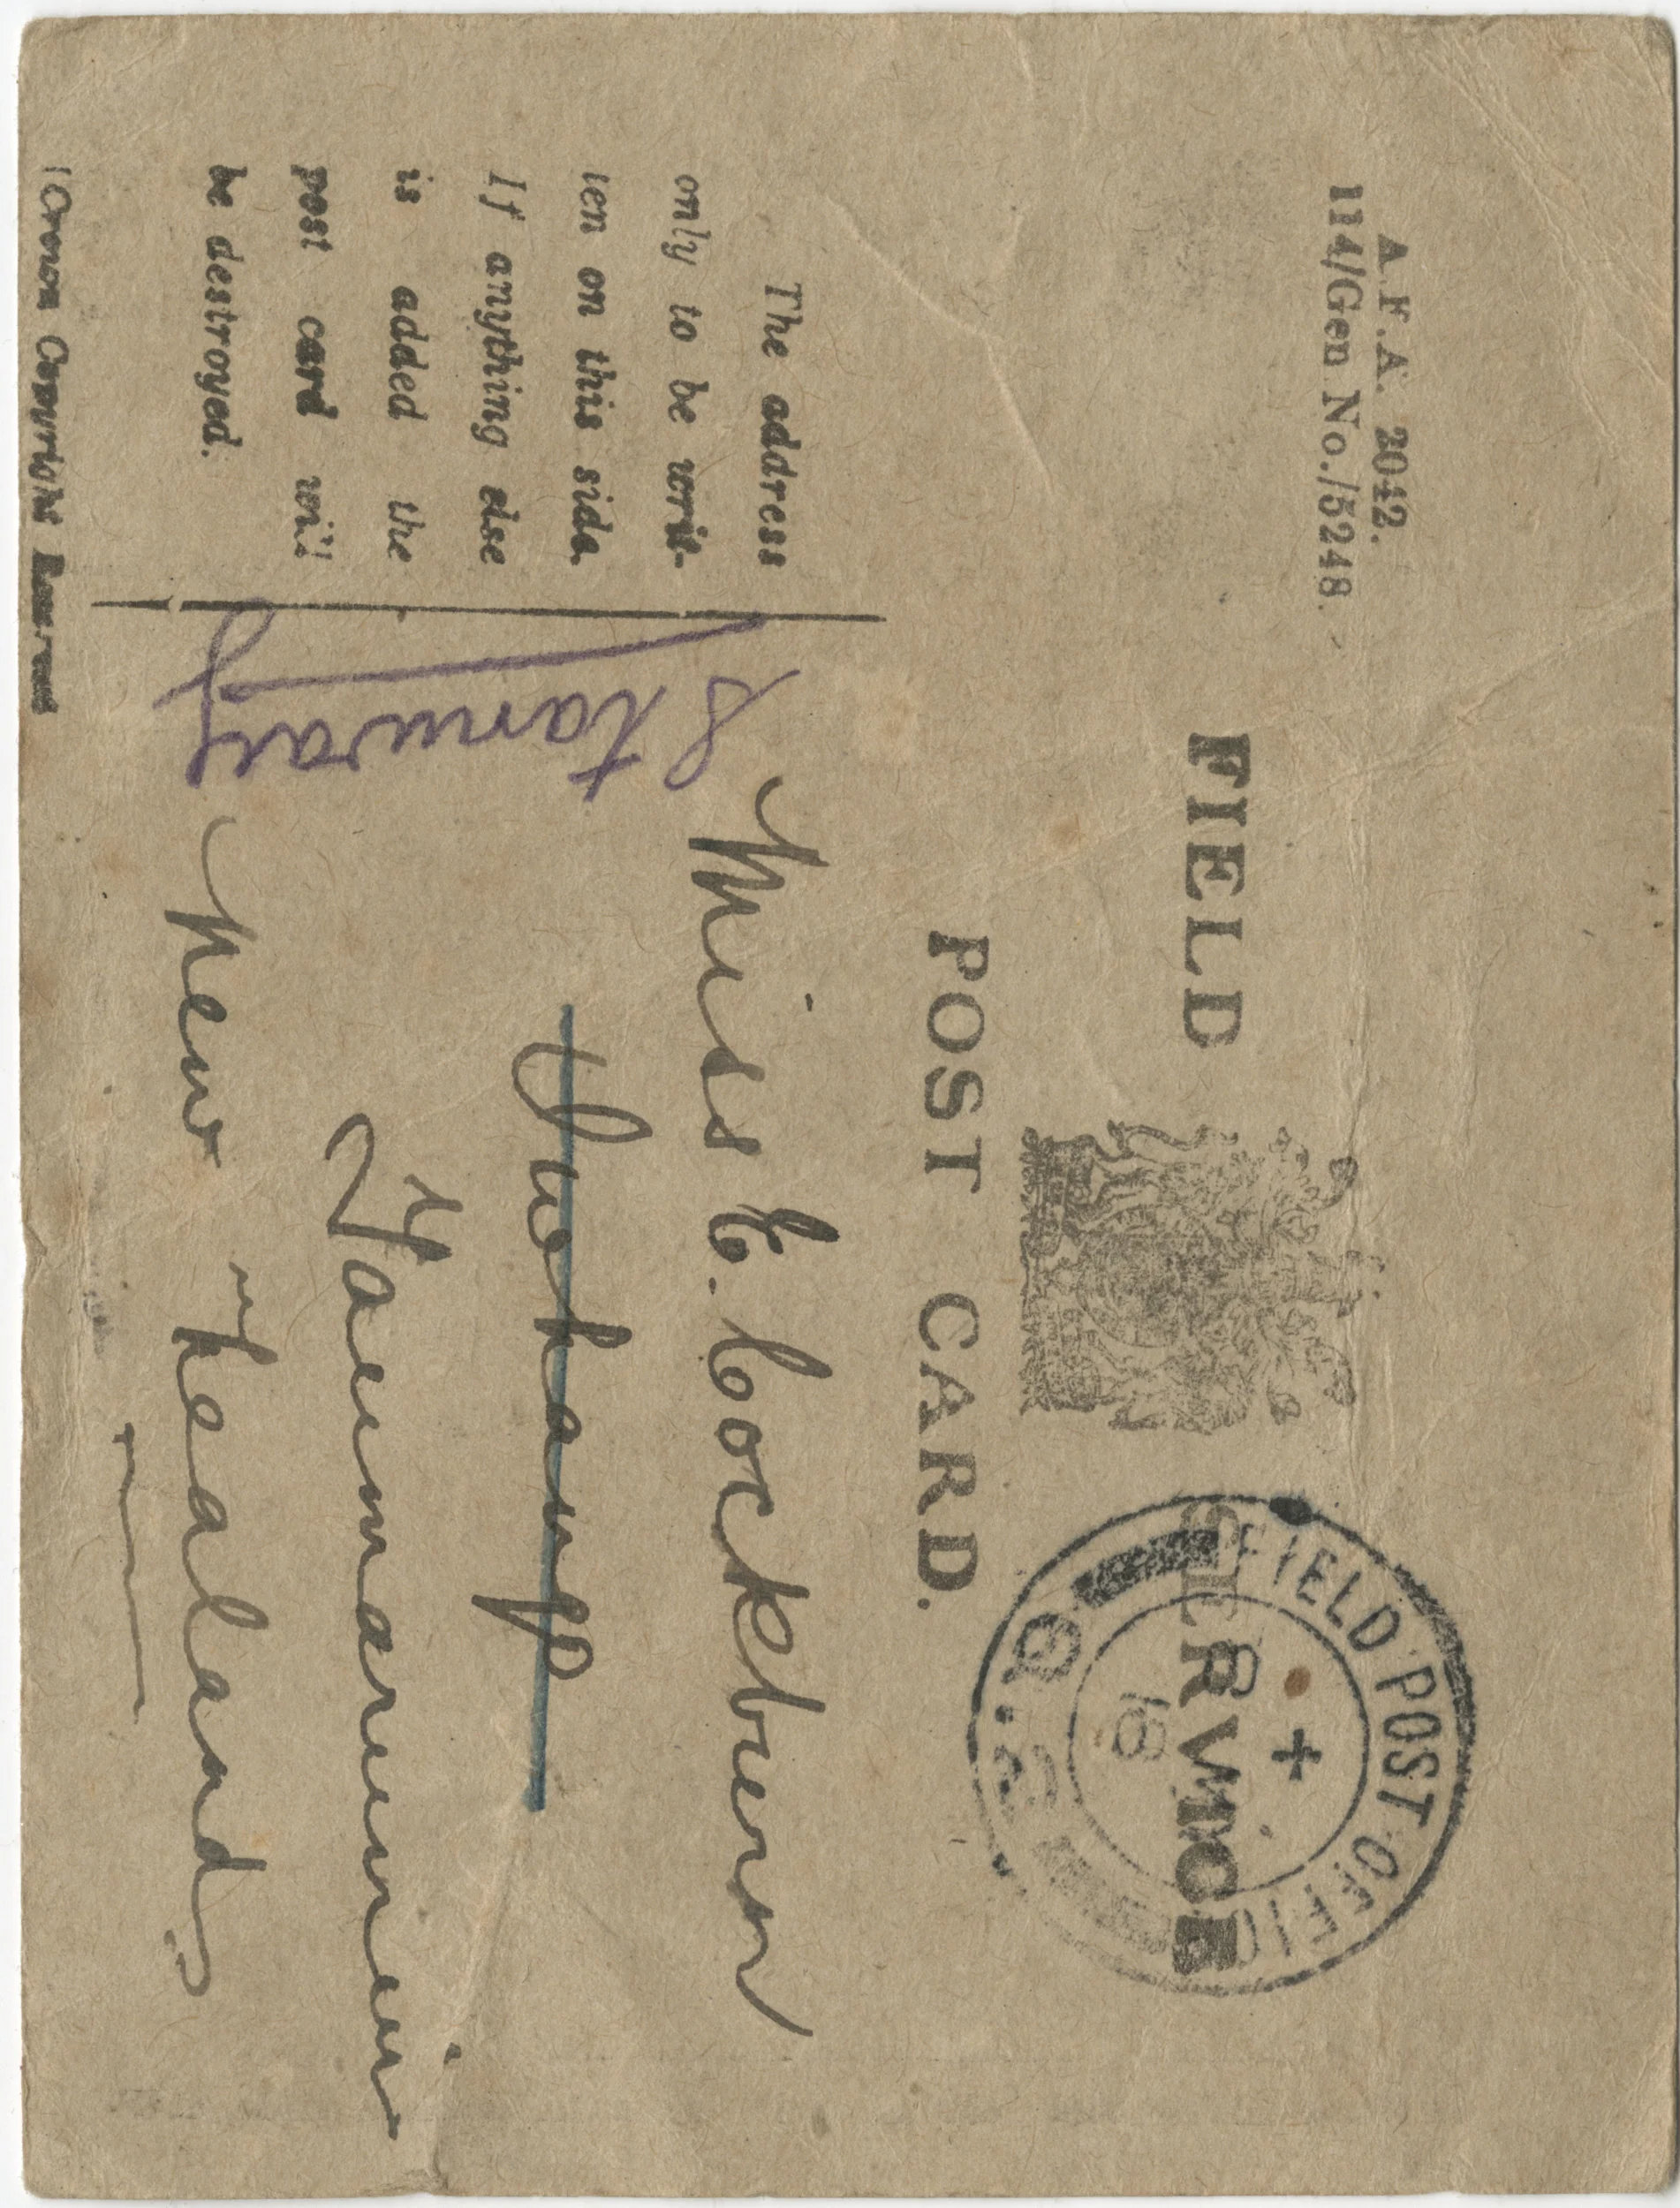 A.F.A. 2042.
114/Gen No./5248.
FIELD SERVICE
POST CARD.
FIELD POST OFFIC
+
The address
only to be writ-
ten on this side.
If anything else
is added the
post card will
be destroyed.
[Crown Copyright Reserved
Stanway
Miss E. Cockburn
Taumarunui
New Zealand